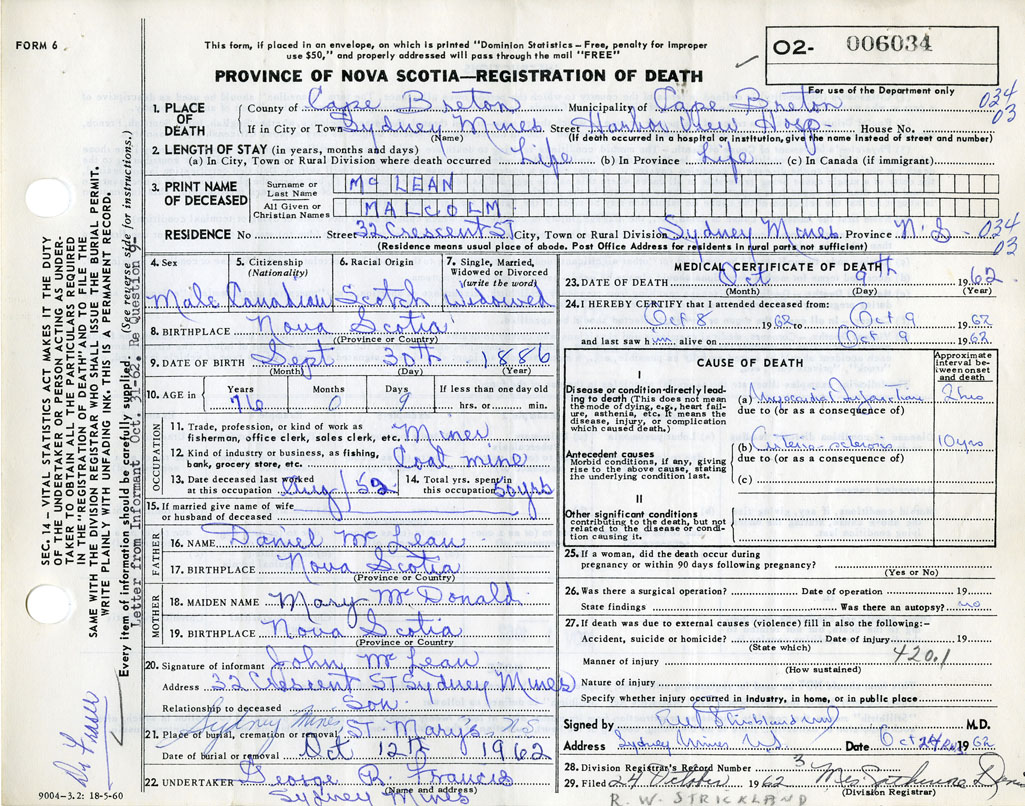 FORM 6
This form, if placed in an envelope, on which is printed "Dominion Statistics — Free, penalty for improper
use $50," and properly addressed will pass through the mail "FREE"
O2- 006034
For use of the Department only
PROVINCE OF NOVA SCOTIA—REGISTRATION OF DEATH
1. PLACE OF DEATH County of Cape Breton Municipality of Cape Breton 034
If in City or Town Sydney Mines Street Harbor View Hosp House No. 03
(Name) (If death occurred in a hospital or institution, give the name instead of street and number)
2. LENGTH OF STAY (in years, months and days)
(a) In City, Town or Rural Division where death occurred Life (b) In Province Life (c) In Canada (if immigrant)
3. PRINT NAME OF DECEASED Surname or Last Name McLEAN
All Given or Christian Names MALCOLM
RESIDENCE No Street 32 Crescent ST City, Town or Rural Division Sydney Mines Province N.S - 034
(Residence means usual place of abode. Post Office Address for residents in rural parts not sufficient) 03
4. Sex 5. Citizenship (Nationality) 6. Racial Origin 7. Single, Married, Widowed or Divorced (write the word)
Male Canadian Scotch Widowed
8. BIRTHPLACE Nova Scotia
(Province or Country)
9. DATE OF BIRTH Sept 30th 1886
(Month) (Day) (Year)
10. AGE in Years Months Days If less than one day old
76 0 9 hrs. or min.
OCCUPATION
11. Trade, profession, or kind of work as
fisherman, office clerk, sales clerk, etc. Miner
12. Kind of industry or business, as fishing,
bank, grocery store, etc. Coal mine
13. Date deceased last worked at this occupation Aug/52 14. Total yrs. spent in this occupation 50 yrs
15. If married give name of wife
or husband of deceased
FATHER
16. NAME Daniel McLean
17. BIRTHPLACE Nova Scotia
(Province or Country)
MOTHER
18. MAIDEN NAME Mary McDonald
19. BIRTHPLACE Nova Scotia
(Province or Country)
20. Signature of informant John McLean
Address 32 Crescent ST Sydney Mines
Relationship to deceased Son
Sydney Mines
21. Place of burial, cremation or removal ST. Mary's NS
Date of burial or removal Oct 12th 1962
22. UNDERTAKER George R. Francis
(Name and address)
Sydney Mines
9004-3.2: 18-5-60
MEDICAL CERTIFICATE OF DEATH
23. DATE OF DEATH Oct 9th 1962
(Month) (Day) (Year)
24. I HEREBY CERTIFY that I attended deceased from:
Oct 8 1962 to Oct 9 1962
and last saw him alive on Oct 9 1962
CAUSE OF DEATH
Approximate interval between onset and death
I
Disease or condition-directly leading to death (This does not mean the mode of dying, e.g., heart failure, asthenia, etc. It means the disease, injury, or complication which caused death.)
(a) Myocardial Infarction 2 hrs
due to (or as a consequence of)
Antecedent causes
Morbid conditions, if any, giving rise to the above cause, stating the underlying condition last.
(b) Arterio-sclerosis 10 yrs
due to (or as a consequence of)
(c)
II
Other significant conditions contributing to the death, but not related to the disease or condition causing it.
25. If a woman, did the death occur during
pregnancy or within 90 days following pregnancy?
(Yes or No)
26. Was there a surgical operation? Date of operation 19
State findings Was there an autopsy? no
27. If death was due to external causes (violence) fill in also the following:-
Accident, suicide or homicide? Date of injury 19
(State which) 420.1
Manner of injury
(How sustained)
Nature of injury
Specify whether injury occurred in industry, in home, or in public place
Signed by Strickland M.D.
Address Sydney Mines Date Oct 24 1962
28. Division Registrar's Record Number 3
29. Filed 24 October 1962 Mrs.
(Division Registrar)
R.W. STRICKLAND
SEC. 14 - VITAL STATISTICS ACT MAKES IT THE DUTY
OF THE UNDERTAKER OR PERSON ACTING AS UNDER-
TAKER TO OBTAIN ALL THE PARTICULARS REQUIRED
IN THE "REGISTRATION OF DEATH" AND TO FILE THE
SAME WITH THE DIVISION REGISTRAR WHO SHALL ISSUE THE BURIAL PERMIT.
WRITE PLAINLY WITH UNFADING INK. THIS IS A PERMANENT RECORD.
Every item of information should be carefully supplied. (See reverse side for instructions.)
Letter from Informant Oct. 31-62. Re Question 9.
Dr Fraser